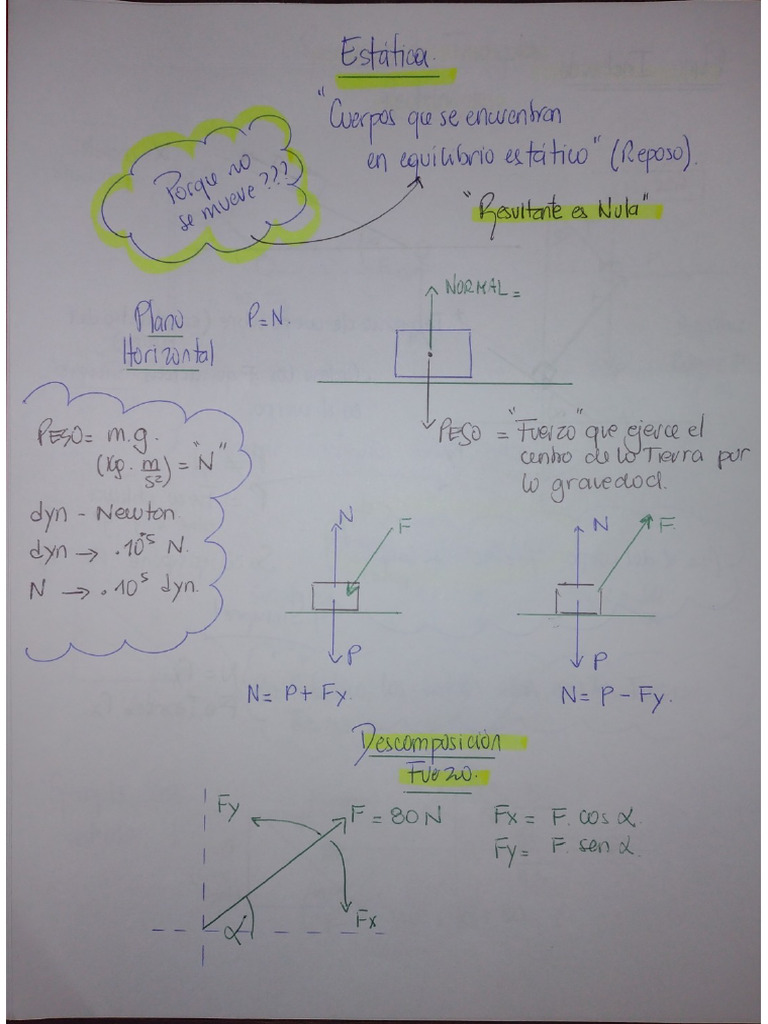 Estática.
"Cuerpos que se encuentran
en equilibrio estático" (Reposo).
Porque no
se mueve???
"Resultante es Nula"
Plano
Horizontal
P=N.
NORMAL =
PESO = "Fuerza" que ejerce el
centro de la Tierra por
la gravedad.
PESO = m.g.
(Kg. m/s²) = "N"
dyn - Newton
dyn → .10⁻⁵ N.
N → .10⁵ dyn.
N
F
P
N= P+ Fy.
N
F.
P
N= P- Fy.
Descomposición
Fuerza.
Fy
F = 80N
Fx
α
Fx= F. cos α.
Fy= F. sen α.